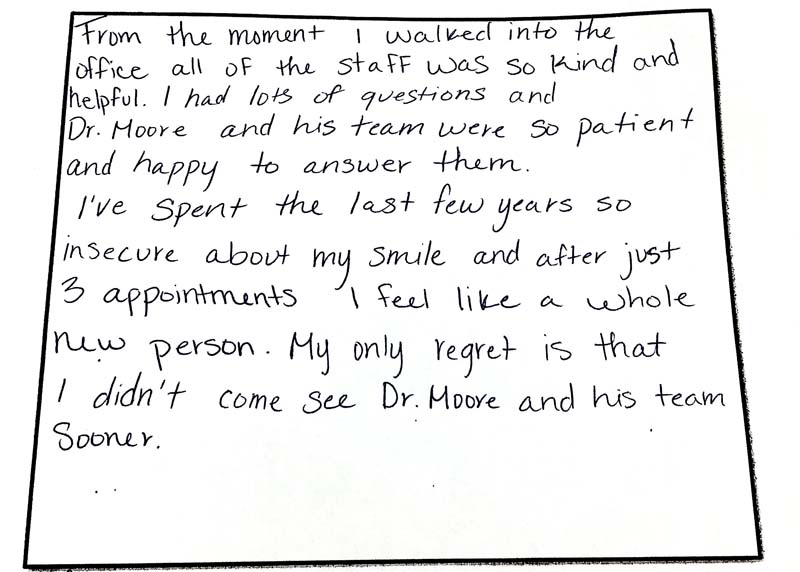 From the moment I walked into the
office all of the staff was so kind and
helpful. I had lots of questions and
Dr. Moore and his team were so patient
and happy to answer them.
I've spent the last few years so
insecure about my smile and after just
3 appointments I feel like a whole
new person. My only regret is that
I didn't come see Dr. Moore and his team
sooner.